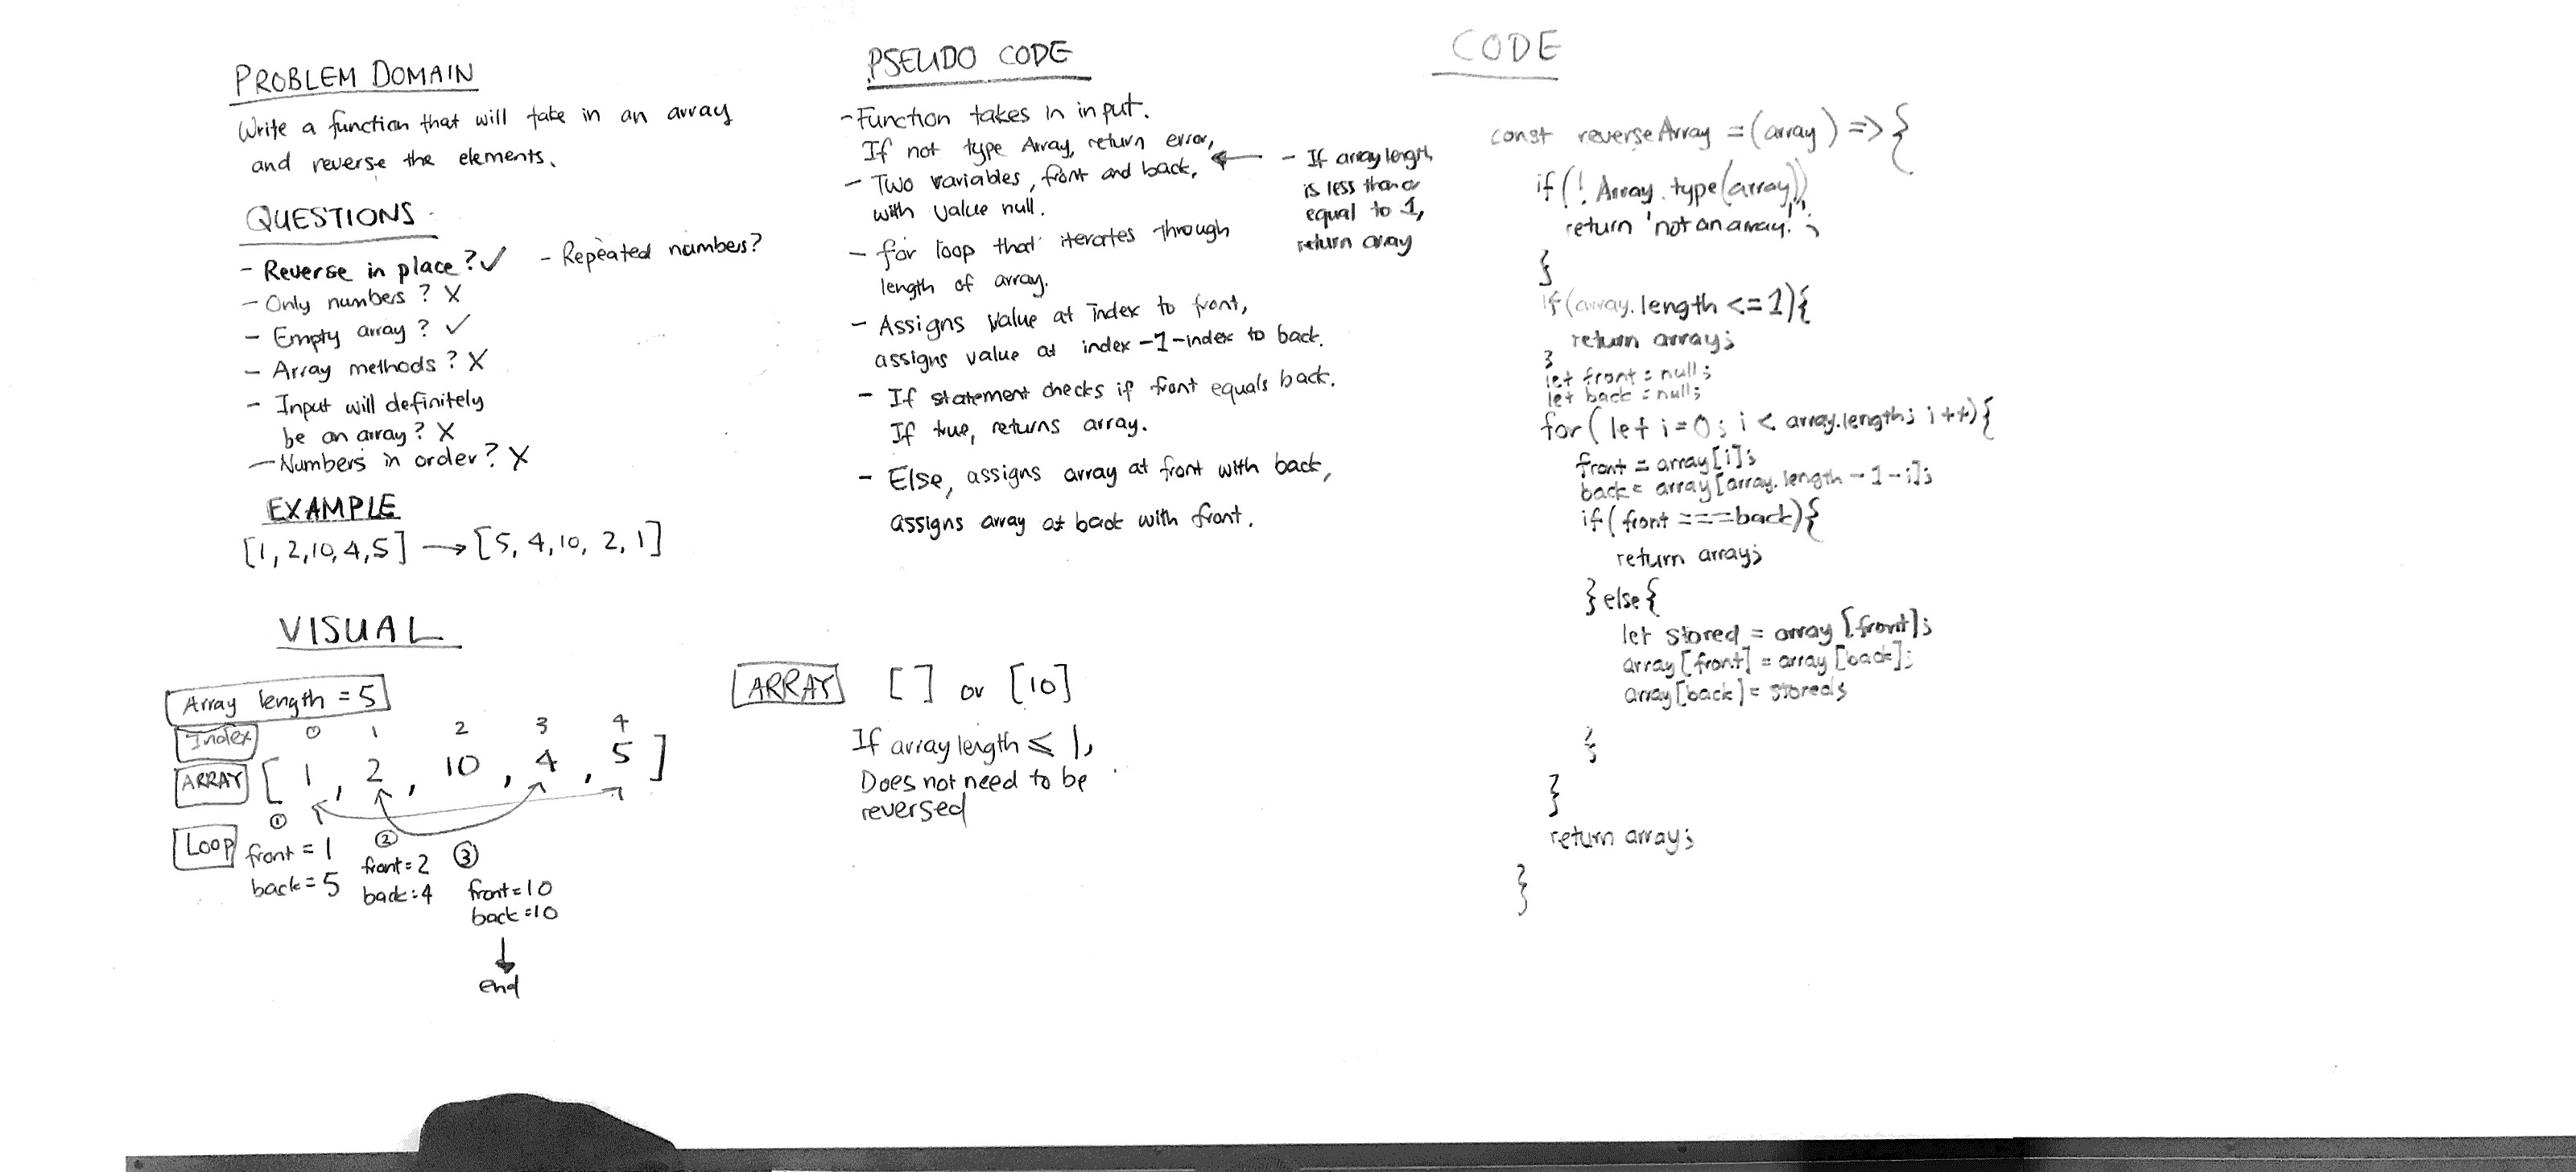 PROBLEM DOMAIN
Write a function that will take in an array
and reverse the elements.
QUESTIONS
- Reverse in place? ✓
- Only numbers? X
- Empty array? ✓
- Array methods? X
- Input will definitely
be an array? X
- Numbers in order? X
- Repeated numbers?
EXAMPLE
[1, 2, 10, 4, 5] → [5, 4, 10, 2, 1]
VISUAL
Array length = 5
Index 0 1 2 3 4
ARRAY [ 1 , 2 , 10 , 4 , 5 ]
Loop
①
front = 1
back = 5
②
front = 2
back = 4
③
front = 10
back = 10
↓
end
ARRAY [ ] or [10]
If array length ⩽ 1,
Does not need to be
reversed
PSEUDO CODE
- Function takes in input.
If not type Array, return error,
- Two variables, front and back,
with value null.
- for loop that iterates through
length of array.
- Assigns value at index to front,
assigns value at index -1-index to back.
- If statement checks if front equals back.
If true, returns array.
- Else, assigns array at front with back,
assigns array at back with front.
← - If array length
is less than or
equal to 1,
return array
CODE
const reverseArray = (array) => {
if (! Array.type(array)),
return 'not an array!';
}
if(array.length <= 1){
return array;
}
let front = null;
let back = null;
for( let i = 0; i < array.length; i++){
front = array[i];
back = array[array.length - 1 - i];
if( front === back){
return array;
} else {
let stored = array [front];
array[front] = array [back];
array[back] = stored;
}
}
return array;
}